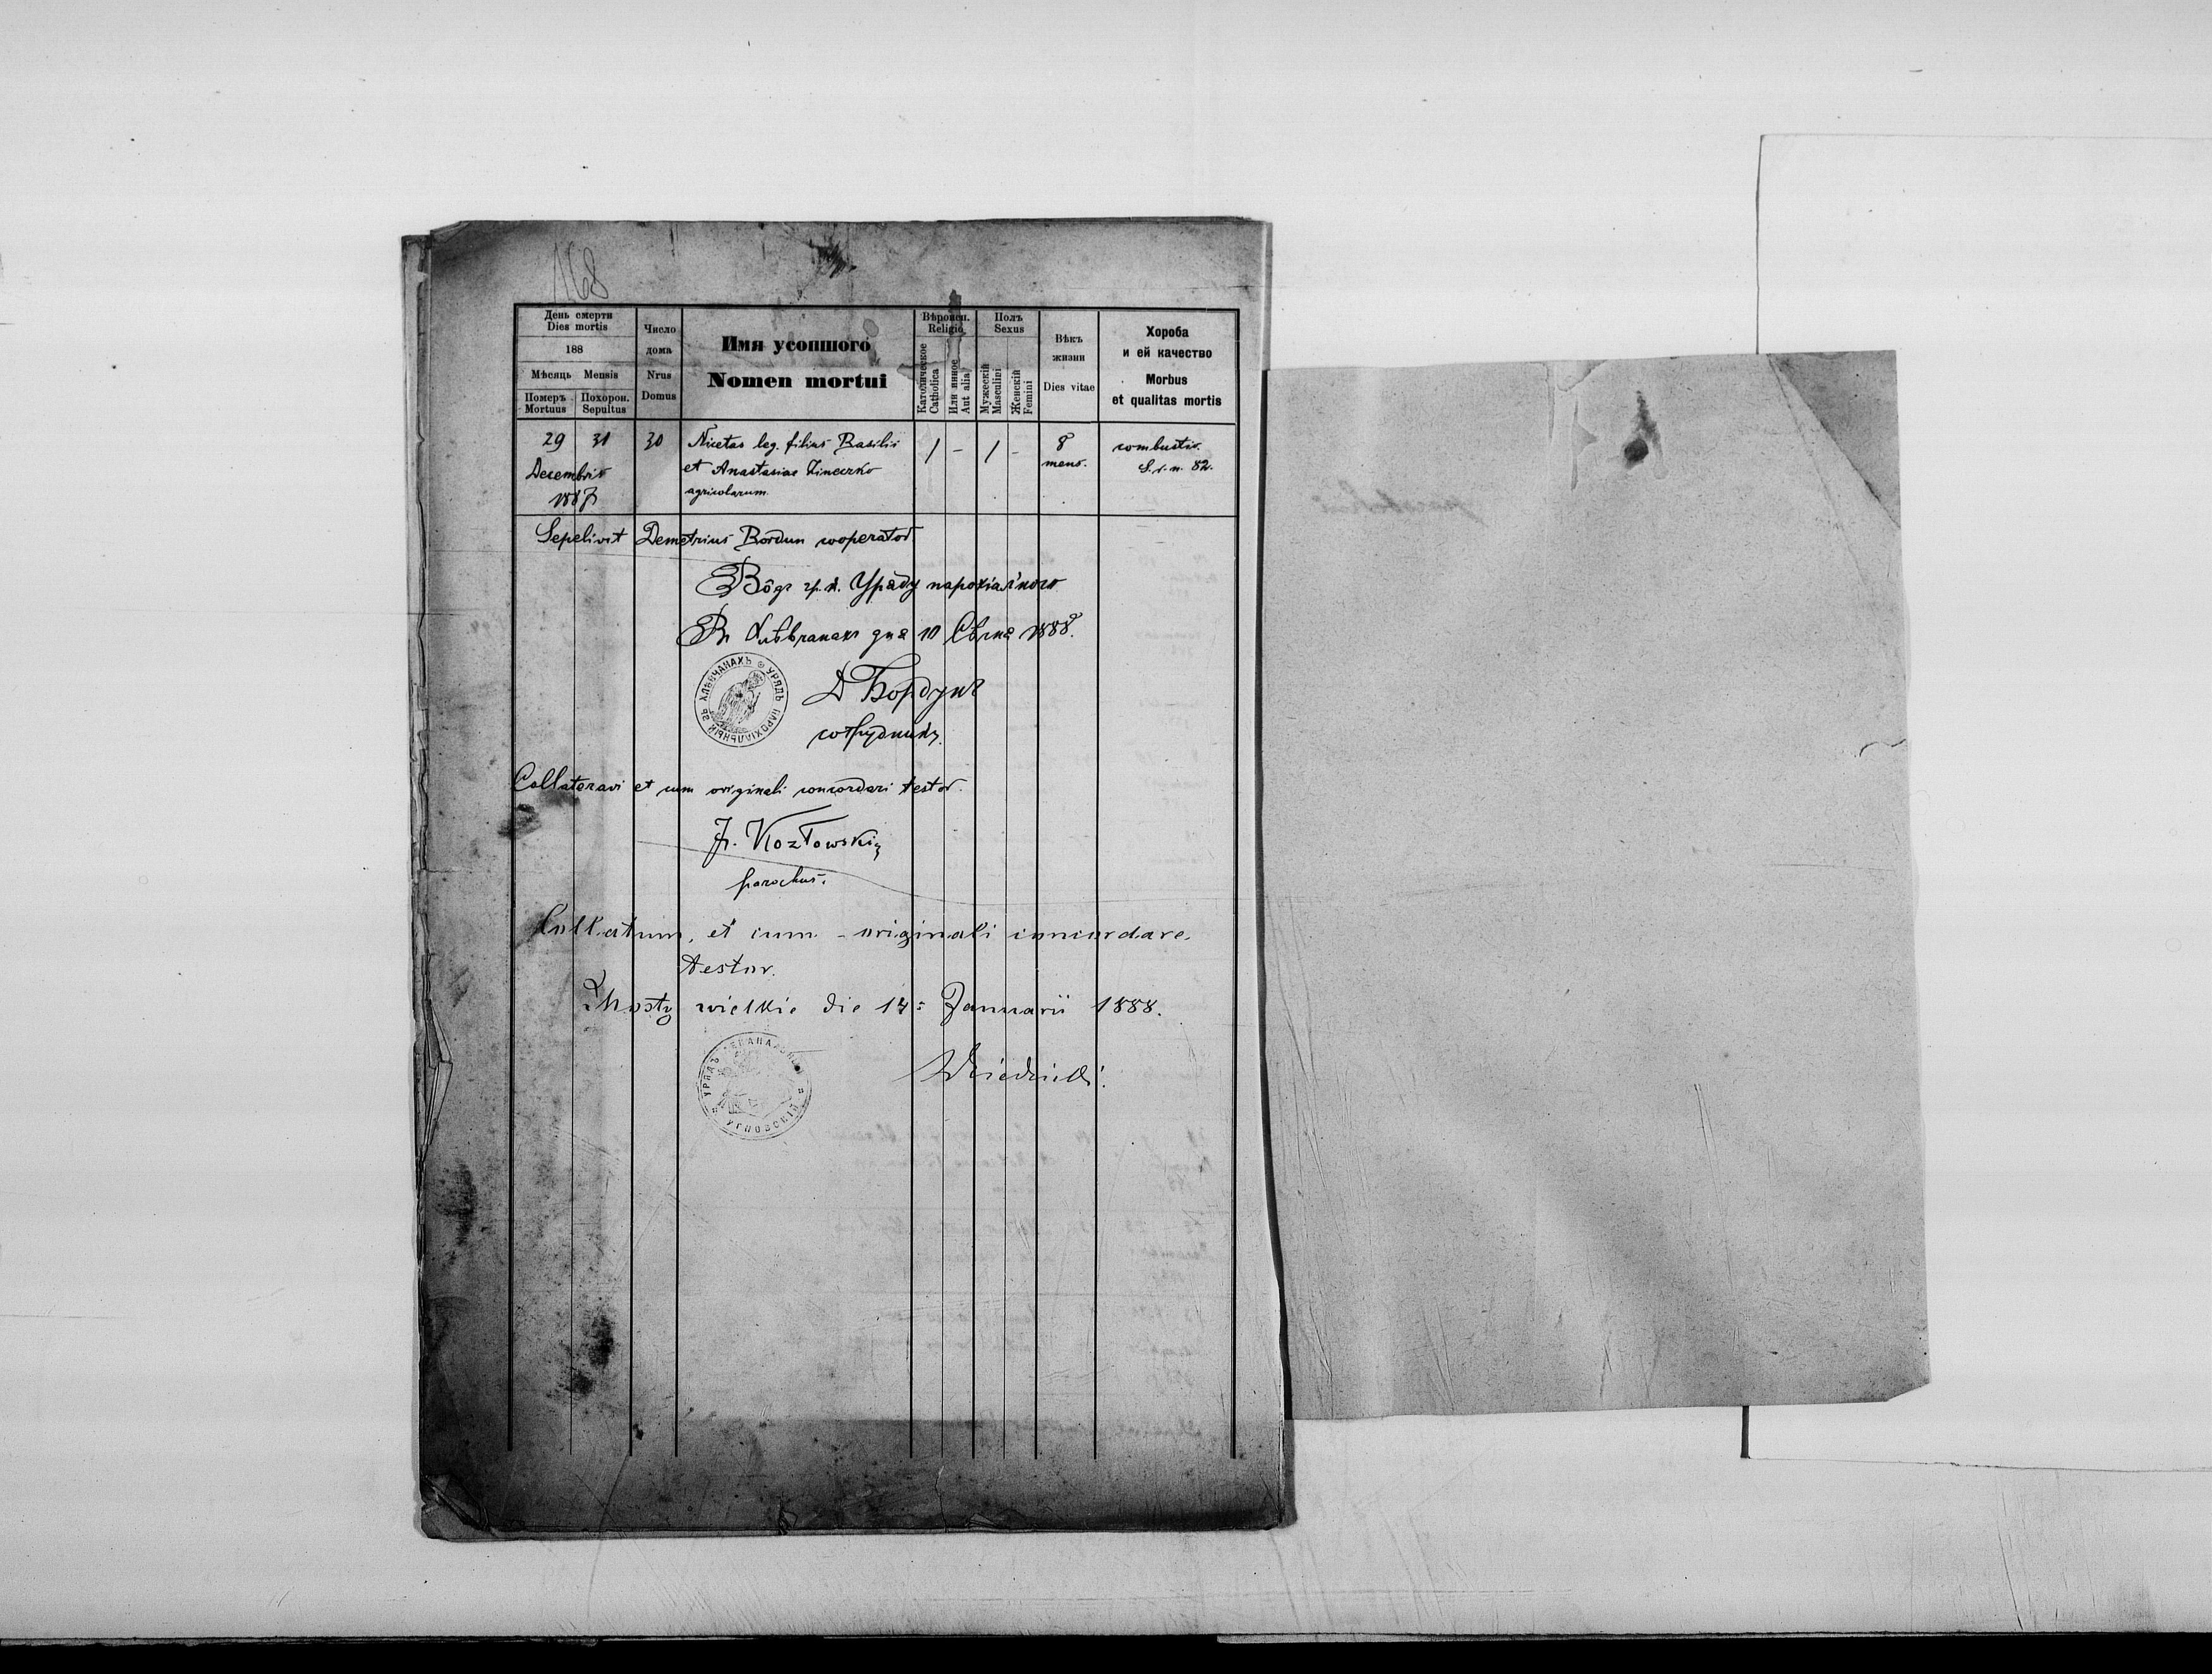 168
День смерти
Dies mortis
188
Мѣсяць Mensis
Померъ Похорон.
Mortuus Sepultus
Число
дома
Nrus
Domus
Имя усопшого
Nomen mortui
Вѣроисп.
Religio
Католическое
Catholica
Или инное
Aut alia
Полъ
Sexus
Мужескій
Masculini
Женскій
Femini
Вѣкъ
жизни
Dies vitae
Хороба
и ей качество
Morbus
et qualitas mortis
29 31 30 Nicetas leg. filius Basilii 1 - 1 - 8 combustio.
Decembris et Anastasiae mens. S. r. n. 82.
1887 agricolarum
Sepelivit Demetrius Bordun cooperator
Вôдъ гр. к. Уряду парохіяльного
Въ Хлѣвчанахъ дня 10 Сѣчня 1888.
УРЯДЪ ПАРОХІАЛЬНЫЙ ВЪ ХЛѢВЧАНАХЪ
Д Бордунъ
сотрудникъ
Collatoravi et cum originali concordari testor.
Kozłowski
parochus.
Collatum, et cum originali concordare
testor.
Mosty wielkie die 14 Januarii 1888.
УРЯДЪ ДЕКАНАЛЬНЫЙ УГНОВСКІЙ